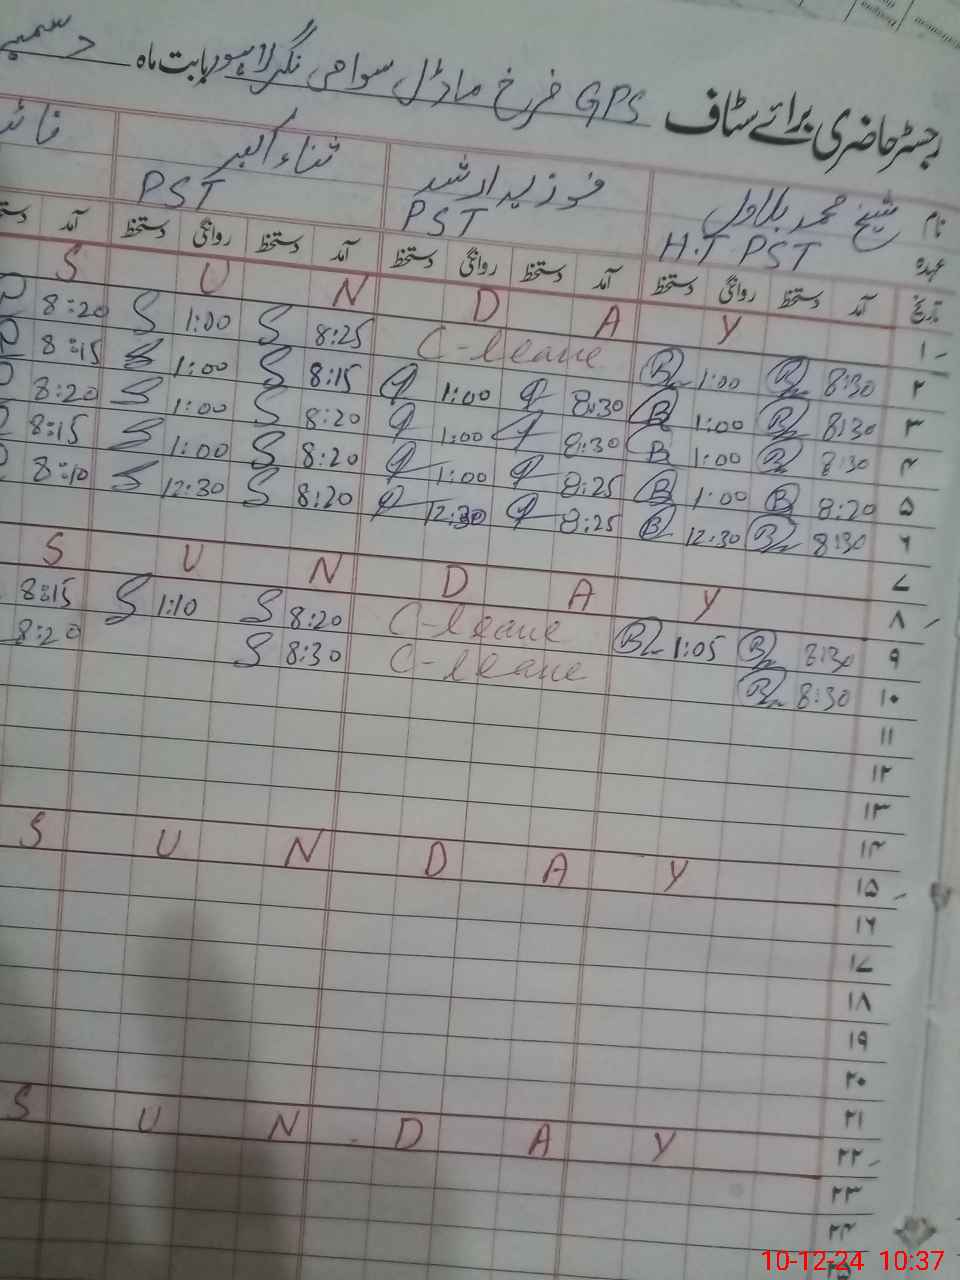 رجسٹر حاضری برائے سٹاف GPS فرخ ماڈل سوامی نگر لاہور بابت ماہ دسمبر
نام شیخ محمد بلاول فوزیہ ارشد ثناء اکبر
عہدہ H.T PST PST PST
تاریخ آمد دستخط روانگی دستخط آمد دستخط روانگی دستخط آمد دستخط روانگی دستخط آمد
۱ S U N D A Y
۲ 8:30 1:00 C-leave 8:25 1:00 8:20
۳ 8:30 1:00 8:30 1:00 8:15 1:00 8:15
۴ 8:30 1:00 8:30 1:00 8:20 1:00 8:20
۵ 8:20 1:00 8:25 1:00 8:20 1:00 8:15
۶ 8:30 12:30 8:25 12:30 8:20 12:30 8:10
۷
۸ S U N D A Y
۹ 8:30 1:05 C-leave 8:20 1:10 8:15
۱۰ 8:30 C-leave 8:30 8:20
۱۱
۱۲
۱۳
۱۴
۱۵ S U N D A Y
۱۶
۱۷
۱۸
۱۹
۲۰
۲۱
۲۲ S U N D A Y
۲۳
۲۴
۲۵
10-12-24 10:37